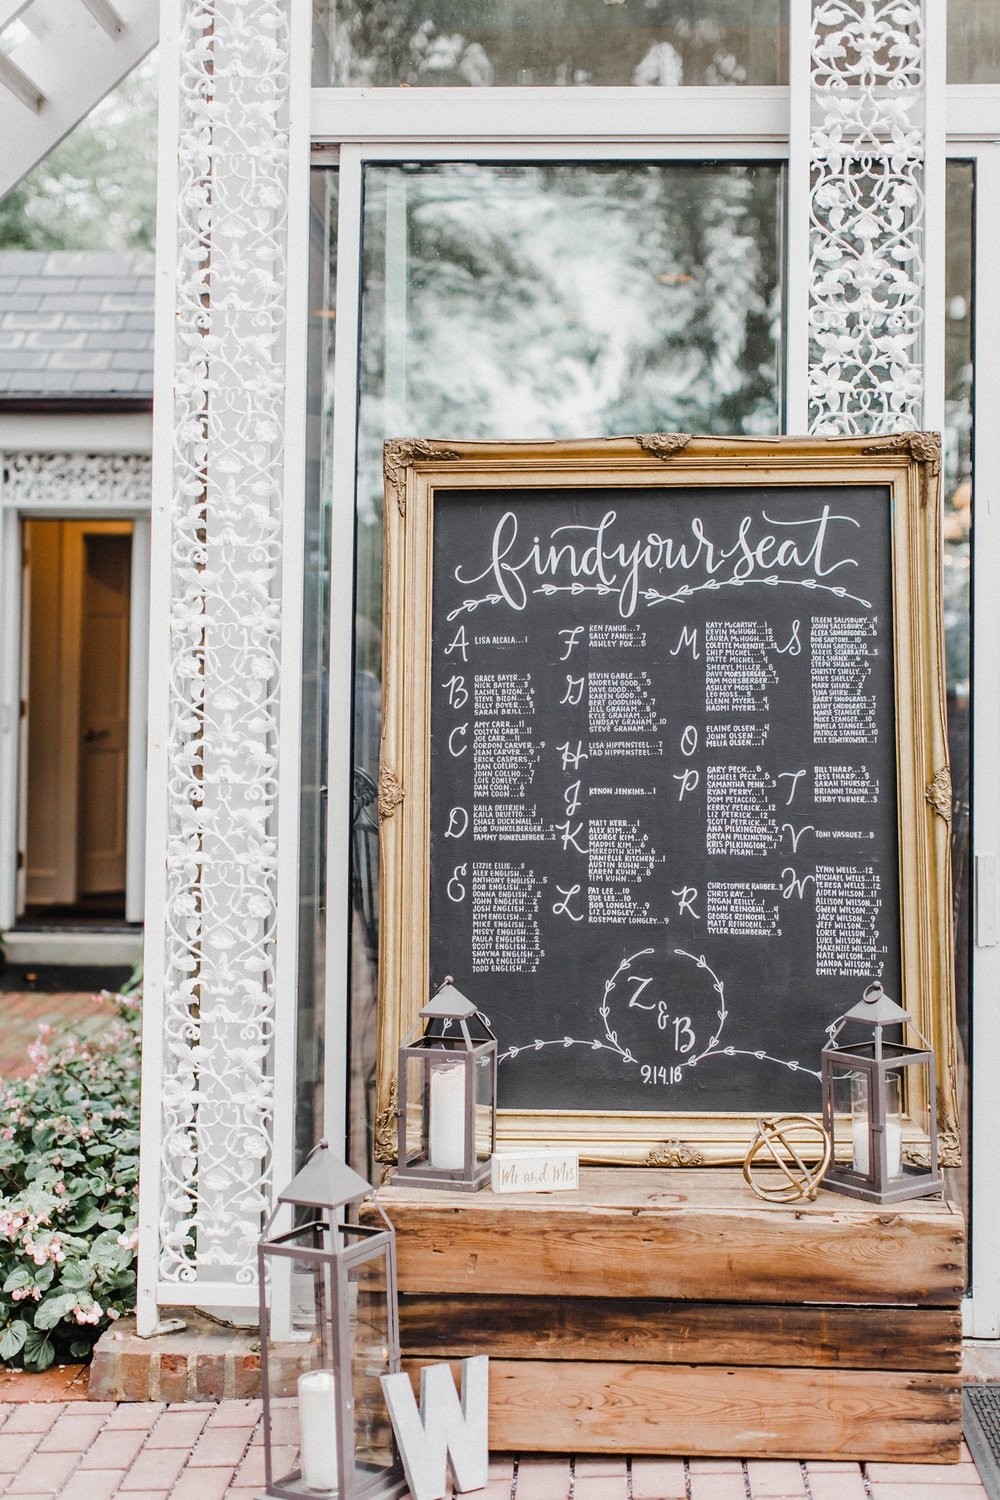 find your seat
A
LISA ALCALA...1
B
GRACE BAYER...3
NICK BAYER...3
RACHEL BIZON...6
STEVE BIZON...6
BILLY BOYER...3
SARAH BRILL...1
C
AMY CARR...11
COLTYN CARR...11
JOE CARR...11
GORDON CARVER...9
JEAN CARVER...9
ERICK CASPERS...7
JEAN COELHO...7
JOHN COELHO...7
LOIS CONLEY...7
DAN COON...6
PAM COON...6
D
KAILA DEITRICH...1
KAILA DRUETTO...3
CHASE DUCKWALL...1
BOB DUNKELBERGER...2
TAMMY DUNKELBERGER...2
E
LIZZIE ELLIS...3
ALEX ENGLISH...2
ANTHONY ENGLISH...5
BOB ENGLISH...2
DONNA ENGLISH...2
JOHN ENGLISH...2
JOSH ENGLISH...2
KIM ENGLISH...2
MIKE ENGLISH...2
MISSY ENGLISH...2
PAULA ENGLISH...2
SCOTT ENGLISH...2
SHAYNA ENGLISH...5
TANYA ENGLISH...2
TODD ENGLISH...2
F
KEN FANUS...7
SALLY FANUS...7
ASHLEY FOX...5
G
KEVIN GABLE...5
ANDREW GOOD...5
DAVE GOOD...5
KAREN GOOD...5
BERT GOODLING...7
JILL GRAHAM...8
KYLE GRAHAM...10
LINDSAY GRAHAM...10
STEVE GRAHAM...8
H
LISA HIPPENSTEEL...7
TAD HIPPENSTEEL...7
J
KENON JENKINS...1
K
MATT KERR...1
ALEX KIM...6
GEORGE KIM...6
MADDIE KIM...6
MEREDITH KIM...6
DANIELLE KITCHEN...1
AUSTIN KUHN...8
KAREN KUHN...8
TIM KUHN...8
L
PAT LEE...10
SUE LEE...10
BOB LONGLEY...9
LIZ LONGLEY...9
ROSEMARY LONGLEY...9
M
KATY McCARTHY...1
KEVIN McHUGH...12
LAURA McHUGH...12
COLETTE McKENZIE...12
CHIP MICHEL...4
PATTE MICHEL...4
SHERYL MILLER...8
DAVE MORSBERGER...7
PAM MORSBERGER...7
ASHLEY MOSS...5
LEO MOSS...5
GLENN MYERS...4
NAOMI MYERS...4
O
ELAINE OLSEN...4
JOHN OLSEN...4
MELIA OLSEN...1
P
GARY PECK...8
MICHELE PECK...8
SAMANTHA PENK...3
RYAN PERRY...1
DOM PETACCIO...1
KERRY PETRICK...12
LIZ PETRICK...12
SCOTT PETRICK...12
ANA PILKINGTON...7
BRYAN PILKINGTON...7
KRIS PILKINGTON...1
SEAN PISANI...3
R
CHRISTOPHER RAUBER...3
CHRIS RAY...1
MEGAN REILLY...1
DAWN REINOEHL...4
GEORGE REINOEHL...4
MATT REINOEHL...3
TYLER ROSENBERRY...3
S
EILEEN SALISBURY...4
JOHN SALISBURY...4
ALEXA SANGREGORIO...8
BOB SARTORI...10
VIVIAN SARTORI...10
ALEXIS SCIARRATTA...3
JOEL SHANK...6
STEPH SHANK...6
CHRISTY SHELLY...7
MIKE SHELLY...7
MARK SHIRK...2
TINA SHIRK...2
BARRY SNODGRASS...7
KATHY SNODGRASS...7
MARIE STANGEE...10
MIKE STANGEE...10
PAMELA STANGEE...10
PATRICK STANGEE...10
KYLE SZWEIKOWSKI...1
T
BILL THARP...3
JESS THARP...3
SARAH THURSBY...1
BRIANNE TRAINA...3
KIRBY TURNER...3
V
TONI VASQUEZ...8
W
LYNN WELLS...12
MICHAEL WELLS...12
TERESA WELLS...12
AIDEN WILSON...11
ALLISON WILSON...11
GWEN WILSON...9
JACK WILSON...9
JEFF WILSON...9
LORIE WILSON...9
LUKE WILSON...11
MAKENZIE WILSON...11
NATE WILSON...11
WANDA WILSON...9
EMILY WITMAN...5
Z & B
9.14.18
Mr and Mrs
W